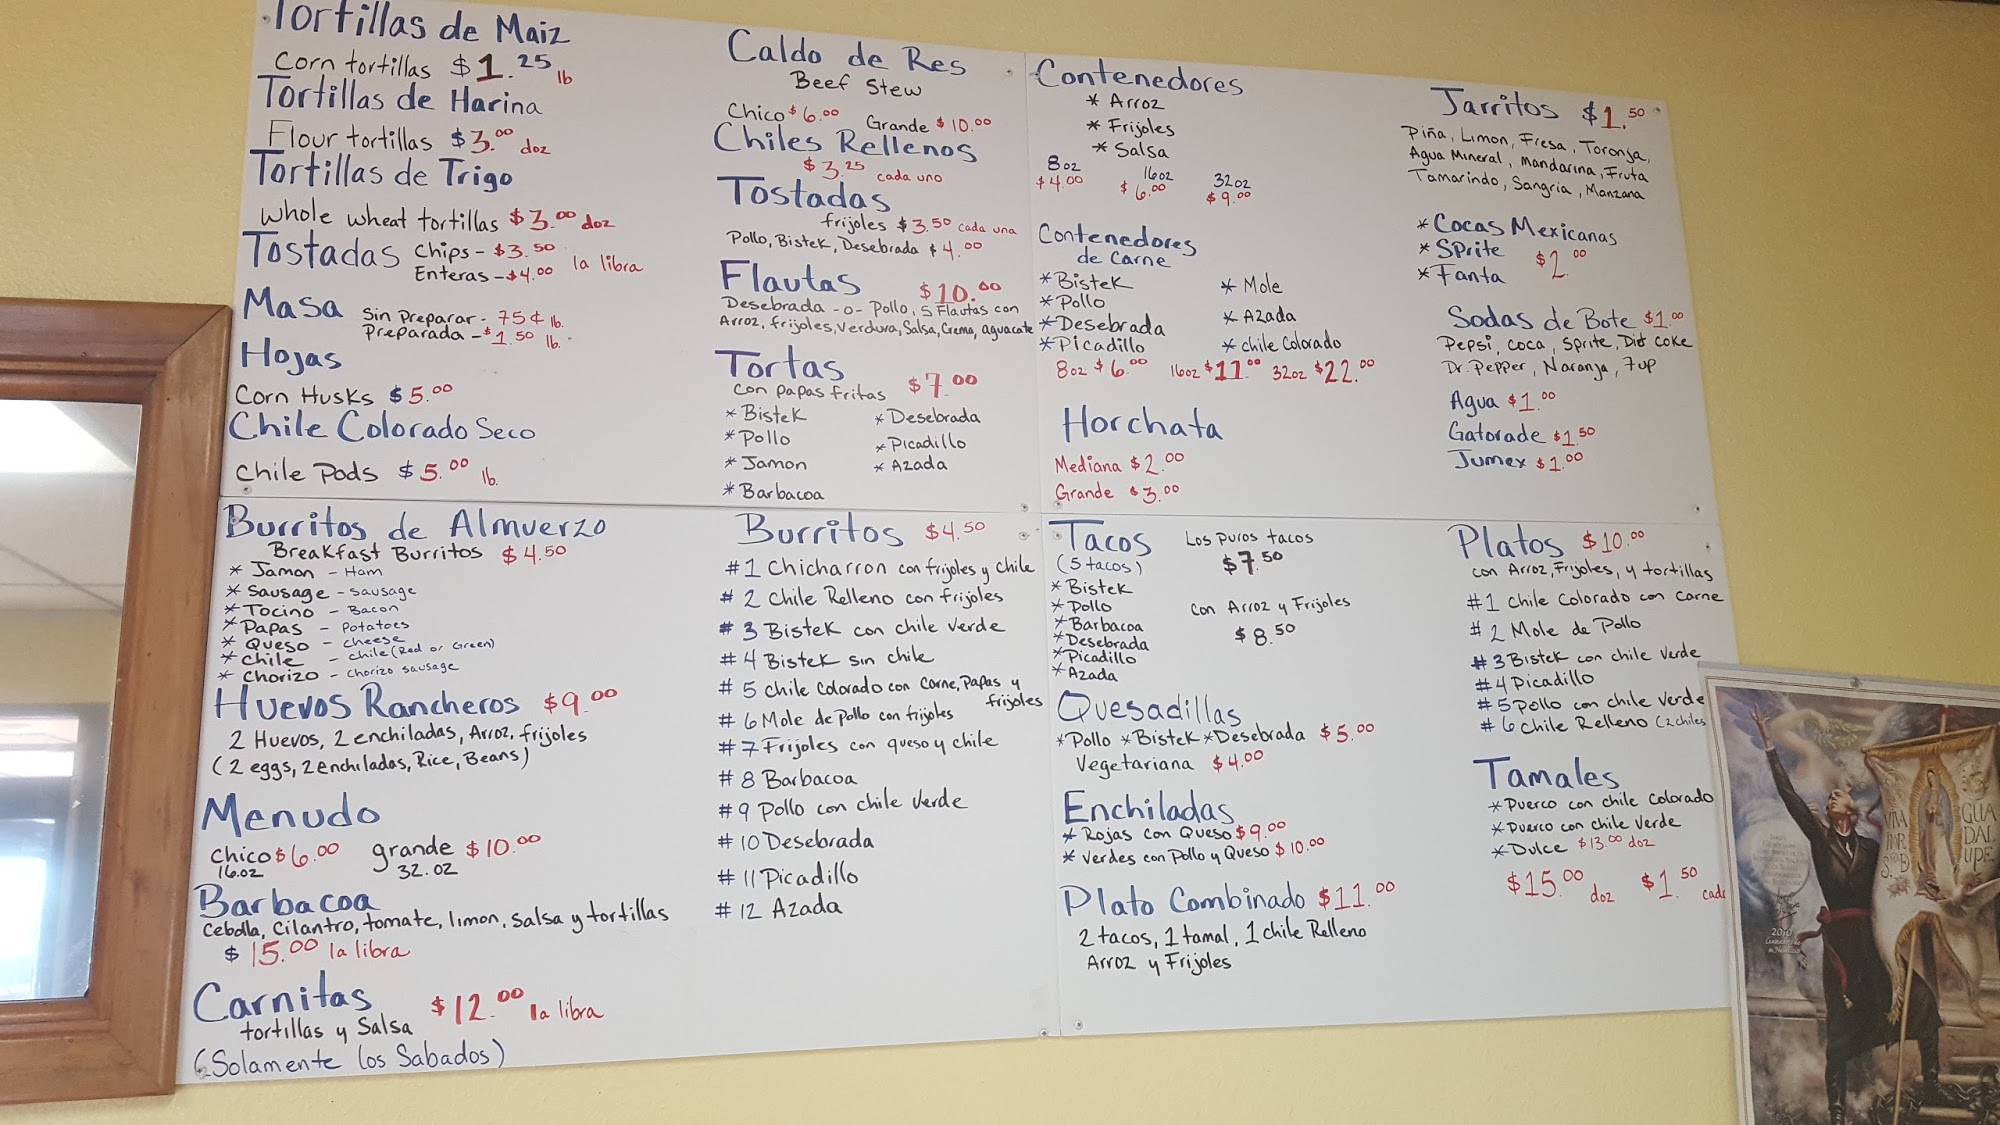 Tortillas de Maiz
Corn tortillas $1.25 lb
Tortillas de Harina
Flour tortillas $3.00 doz
Tortillas de Trigo
whole wheat tortillas $3.00 doz
Tostadas Chips - $3.50
Enteras - $4.00 la libra
Masa Sin Preparar - 75¢ lb.
Preparada - $1.50 lb.
Hojas
Corn Husks $5.00
Chile Colorado Seco
Chile Pods $5.00 lb.
Caldo de Res
Beef Stew
Chico $6.00 Grande $10.00
Chiles Rellenos
$3.25 cada uno
Tostadas
frijoles $3.50 cada una
Pollo, Bistek, Desebrada $4.00
Flautas $10.00
Desebrada -o- Pollo, 5 Flautas con
Arroz, frijoles, Verdura, Salsa, Crema, aguacate
Tortas
con papas fritas $7.00
* Bistek * Desebrada
* Pollo * Picadillo
* Jamon * Azada
* Barbacoa
Contenedores
* Arroz
* Frijoles
* Salsa
8oz 16oz 32oz
$4.00 $6.00 $9.00
Contenedores
de Carne
* Bistek * Mole
* Pollo * Azada
* Desebrada * chile Colorado
* Picadillo
8oz $6.00 16oz $11.00 32oz $22.00
Horchata
Mediana $2.00
Grande $3.00
Jarritos $1.50
Piña, Limon, Fresa, Toronja,
Agua Mineral, Mandarina, Fruta
Tamarindo, Sangria, Manzana
* Cocas Mexicanas
* Sprite $2.00
* Fanta
Sodas de Bote $1.00
Pepsi, coca, Sprite, Diet coke
Dr. Pepper, Naranja, 7up
Agua $1.00
Gatorade $1.50
Jumex $1.00
Burritos de Almuerzo
Breakfast Burritos $4.50
* Jamon - Ham
* Sausage - Sausage
* Tocino - Bacon
* Papas - Potatoes
* Queso - Cheese
* Chile - Chile (Red or Green)
* Chorizo - Chorizo sausage
Huevos Rancheros $9.00
2 Huevos, 2 enchiladas, Arroz, frijoles
(2 eggs, 2 enchiladas, Rice, Beans)
Menudo
Chico $6.00 grande $10.00
16.oz 32.oz
Barbacoa
Cebolla, Cilantro, tomate, limon, Salsa y tortillas
$15.00 la libra
Carnitas $12.00 la libra
tortillas y Salsa
(Solamente los Sabados)
Burritos $4.50
#1 Chicharron con frijoles y chile
#2 Chile Relleno con frijoles
#3 Bistek con chile verde
#4 Bistek sin chile
#5 Chile Colorado con Carne, Papas y
frijoles
#6 Mole de Pollo con frijoles
#7 Frijoles con queso y chile
#8 Barbacoa
#9 Pollo con chile verde
#10 Desebrada
#11 Picadillo
#12 Azada
Tacos Los puros tacos
(5 tacos) $7.50
* Bistek
* Pollo con Arroz y Frijoles
* Barbacoa $8.50
* Desebrada
* Picadillo
* Azada
Quesadillas
* Pollo * Bistek * Desebrada $5.00
Vegetariana $4.00
Enchiladas
* Rojas con Queso $9.00
* Verdes con Pollo y Queso $10.00
Plato Combinado $11.00
2 tacos, 1 tamal, 1 chile Relleno
Arroz y Frijoles
Platos $10.00
con Arroz, Frijoles, y tortillas
#1 Chile Colorado con carne
#2 Mole de Pollo
#3 Bistek con chile verde
#4 Picadillo
#5 Pollo con chile verde
#6 Chile Relleno (2 chiles
Tamales
* Puerco con chile Colorado
* Puerco con chile verde
* Dulce $13.00 doz
$15.00 doz $1.50 cada
GUA
DAL
UPE
2010